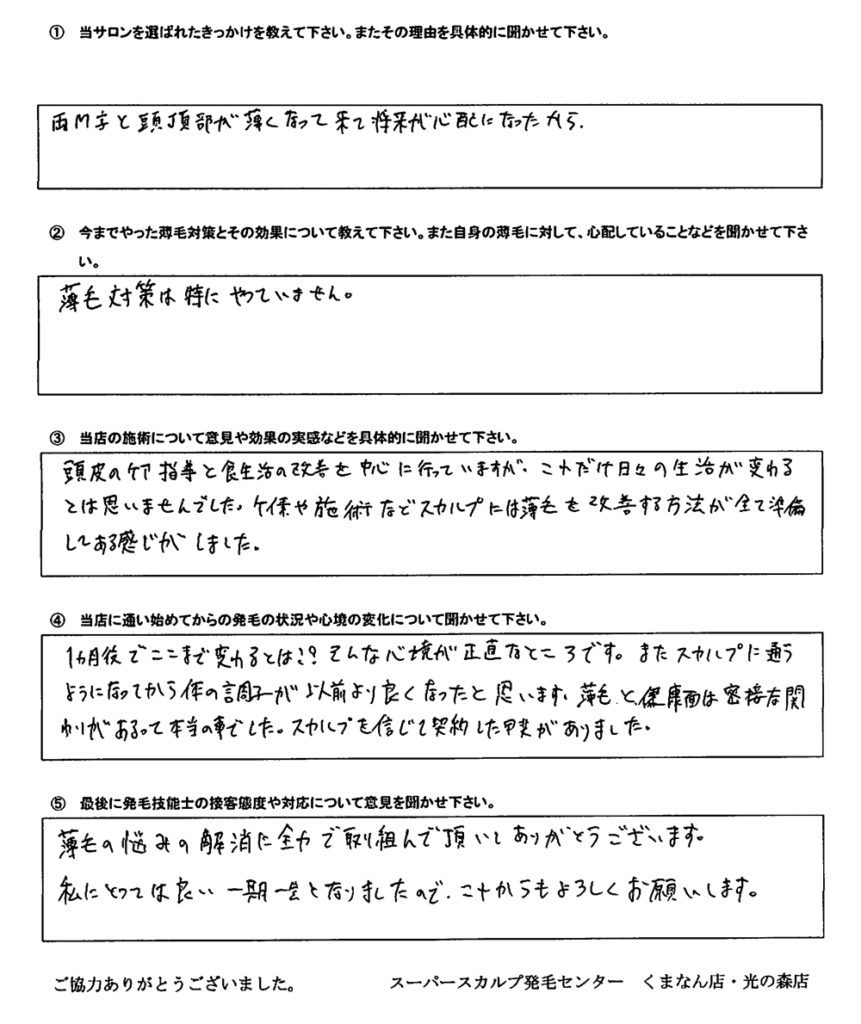 ① 当サロンを選ばれたきっかけを教えて下さい。またその理由を具体的に聞かせて下さい。
両M字と頭頂部が薄くなって来て将来が心配になったから.
② 今までやった薄毛対策とその効果について教えて下さい。また自身の薄毛に対して、心配していることなどを聞かせて下さ
い。
薄毛対策は特にやっていません。
③ 当店の施術について意見や効果の実感などを具体的に聞かせて下さい。
頭皮のケア指導と食生活の改善を中心に行っていますが、これだけ日々の生活が変わる
とは思いませんでした。ケア係や施術などスカルプには薄毛を改善する方法が全て準備
してある感じがしました。
④ 当店に通い始めてからの発毛の状況や心境の変化について聞かせて下さい。
1ヵ月後でここまで変わるとは!? そんな心境が正直なところです。またスカルプに通う
ようになってから体の調子が以前より良くなったと思います、薄毛と健康面は密接な関
わりがあるって本当の事でした。スカルプを信じて契約した甲斐がありました。
⑤ 最後に発毛技能士の接客態度や対応について意見を聞かせ下さい。
薄毛の悩みの解消に全力で取り組んで頂いてありがとうございます。
私にとっては良い一期一会となりましたので、これからもよろしくお願いします。
ご協力ありがとうございました。 スーパースカルプ発毛センター くまなん店・光の森店